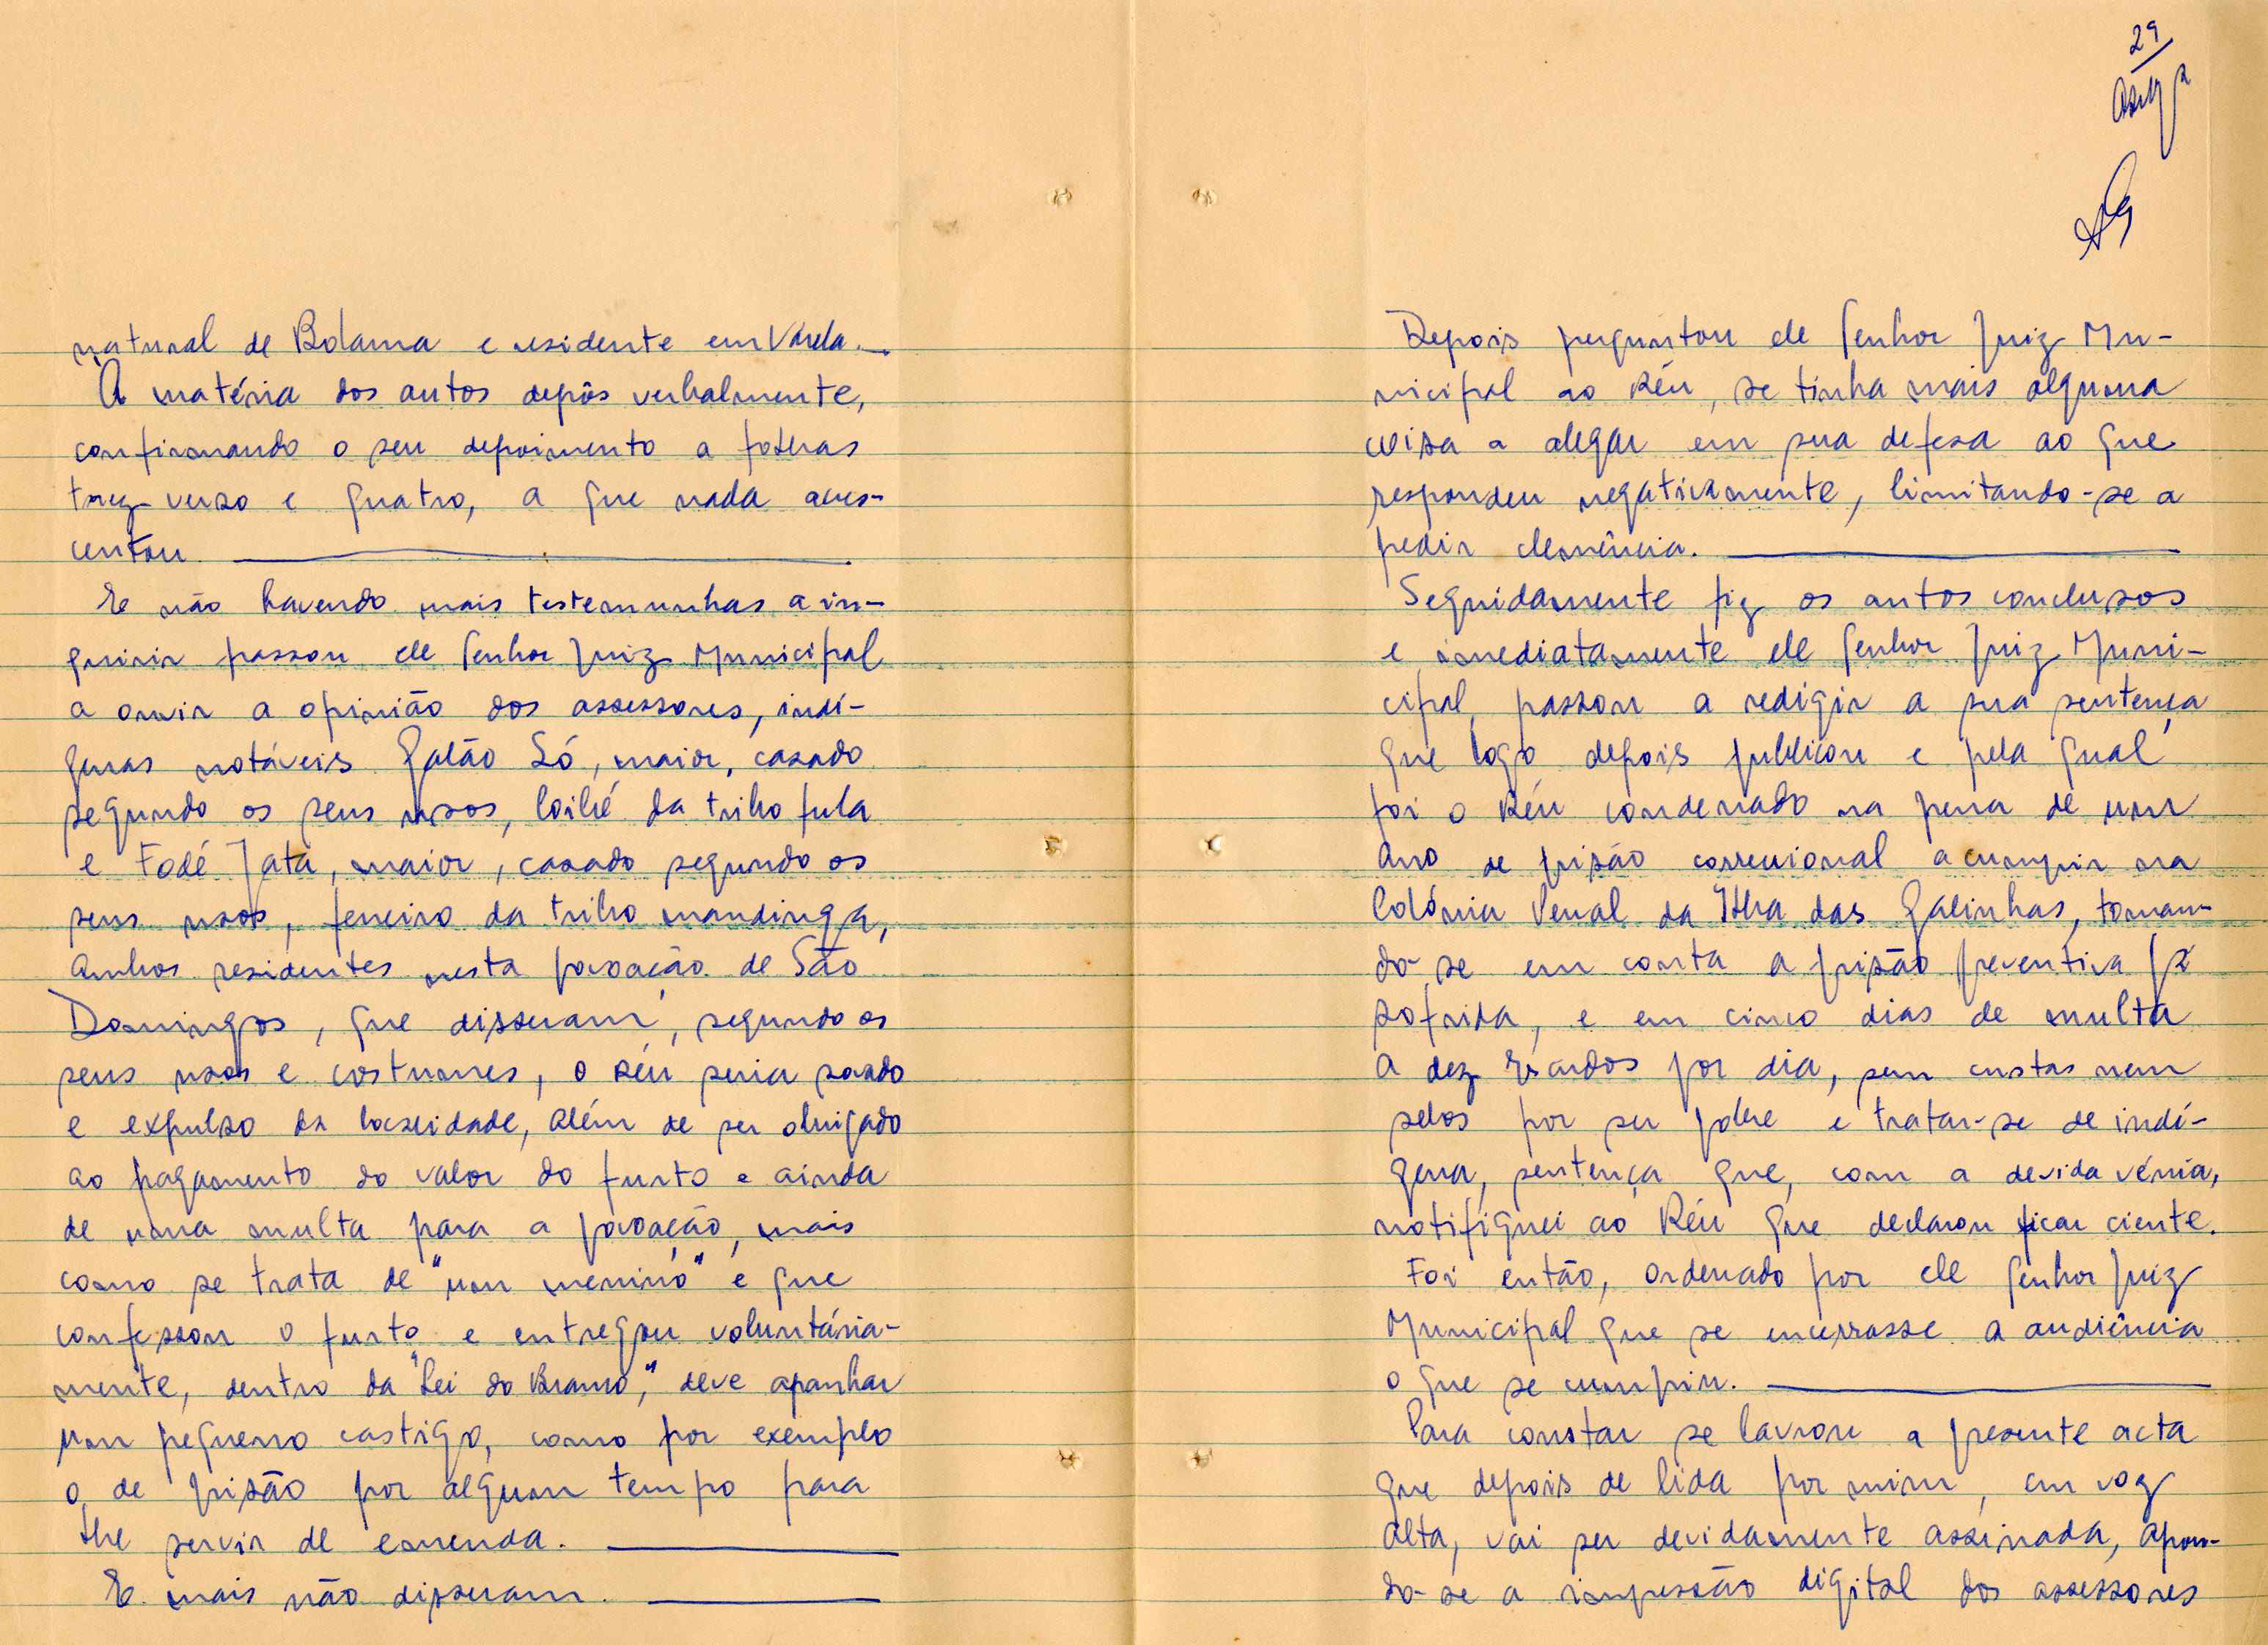 natural de Bolama e residente em Varela.
À matéria dos autos depôs verbalmente,
confirmando o seu depoimento a folhas
trez verso e quatro, a que nada acres-
centou
E não havendo mais testemunhas a in-
quirir passou ele Senhor Juiz Municipal
a ouvir a opinião dos assessores, indí-
genas notáveis Galão Só, maior, casado
segundo os seus usos, da tribo fula
e Fodé Jatá, maior, casado segundo os
seus usos, ferreiro da tribo mandinga,
ambos residentes nesta povoação de São
Domingos, que disseram, segundo os
seus usos e costumes, o réu seria sovado
e expulso da localidade, além de ser obrigado
ao pagamento do valor do furto e ainda
de uma multa para a povoação, mais
como se trata de "um menino" e que
confessou o furto e entregou voluntária-
mente, dentro da "Lei do Branco," deve apanhar
um pequeno castigo, como por exemplo
o de prisão por algum tempo para
lhe servir de emenda.
E mais não disseram.
29
Depois perguntou ele Senhor Juiz Mu-
nicipal ao Réu, se tinha mais alguma
coisa a alegar em sua defesa ao que
respondeu negativamente, limitando-se a
pedir clemência.
Seguidamente fiz os autos conclusos
e imediatamente ele Senhor Juiz Muni-
cipal, passou a redigir a sua sentença
que logo depois publicou e pela qual
foi o Réu condenado na pena de um
ano de prisão correcional a cumprir na
Colónia Penal da Ilha das Galinhas, toman-
do-se em conta a prisão preventiva já
sofrida, e em cinco dias de multa
a dez Escudos por dia, sem custas nem
selos por ser pobre e tratar-se de indí-
gena, sentença que, com a devida vénia,
notifiquei ao Réu que declarou ficar ciente.
Foi então, ordenado por ele Senhor Juiz
Municipal que se encerrasse a audiência
o que se cumpriu.
Para constar se lavrou a presente acta
que depois de lida por mim, em voz
alta, vai ser devidamente assinada, apon-
do-se a impressão digital dos assessores